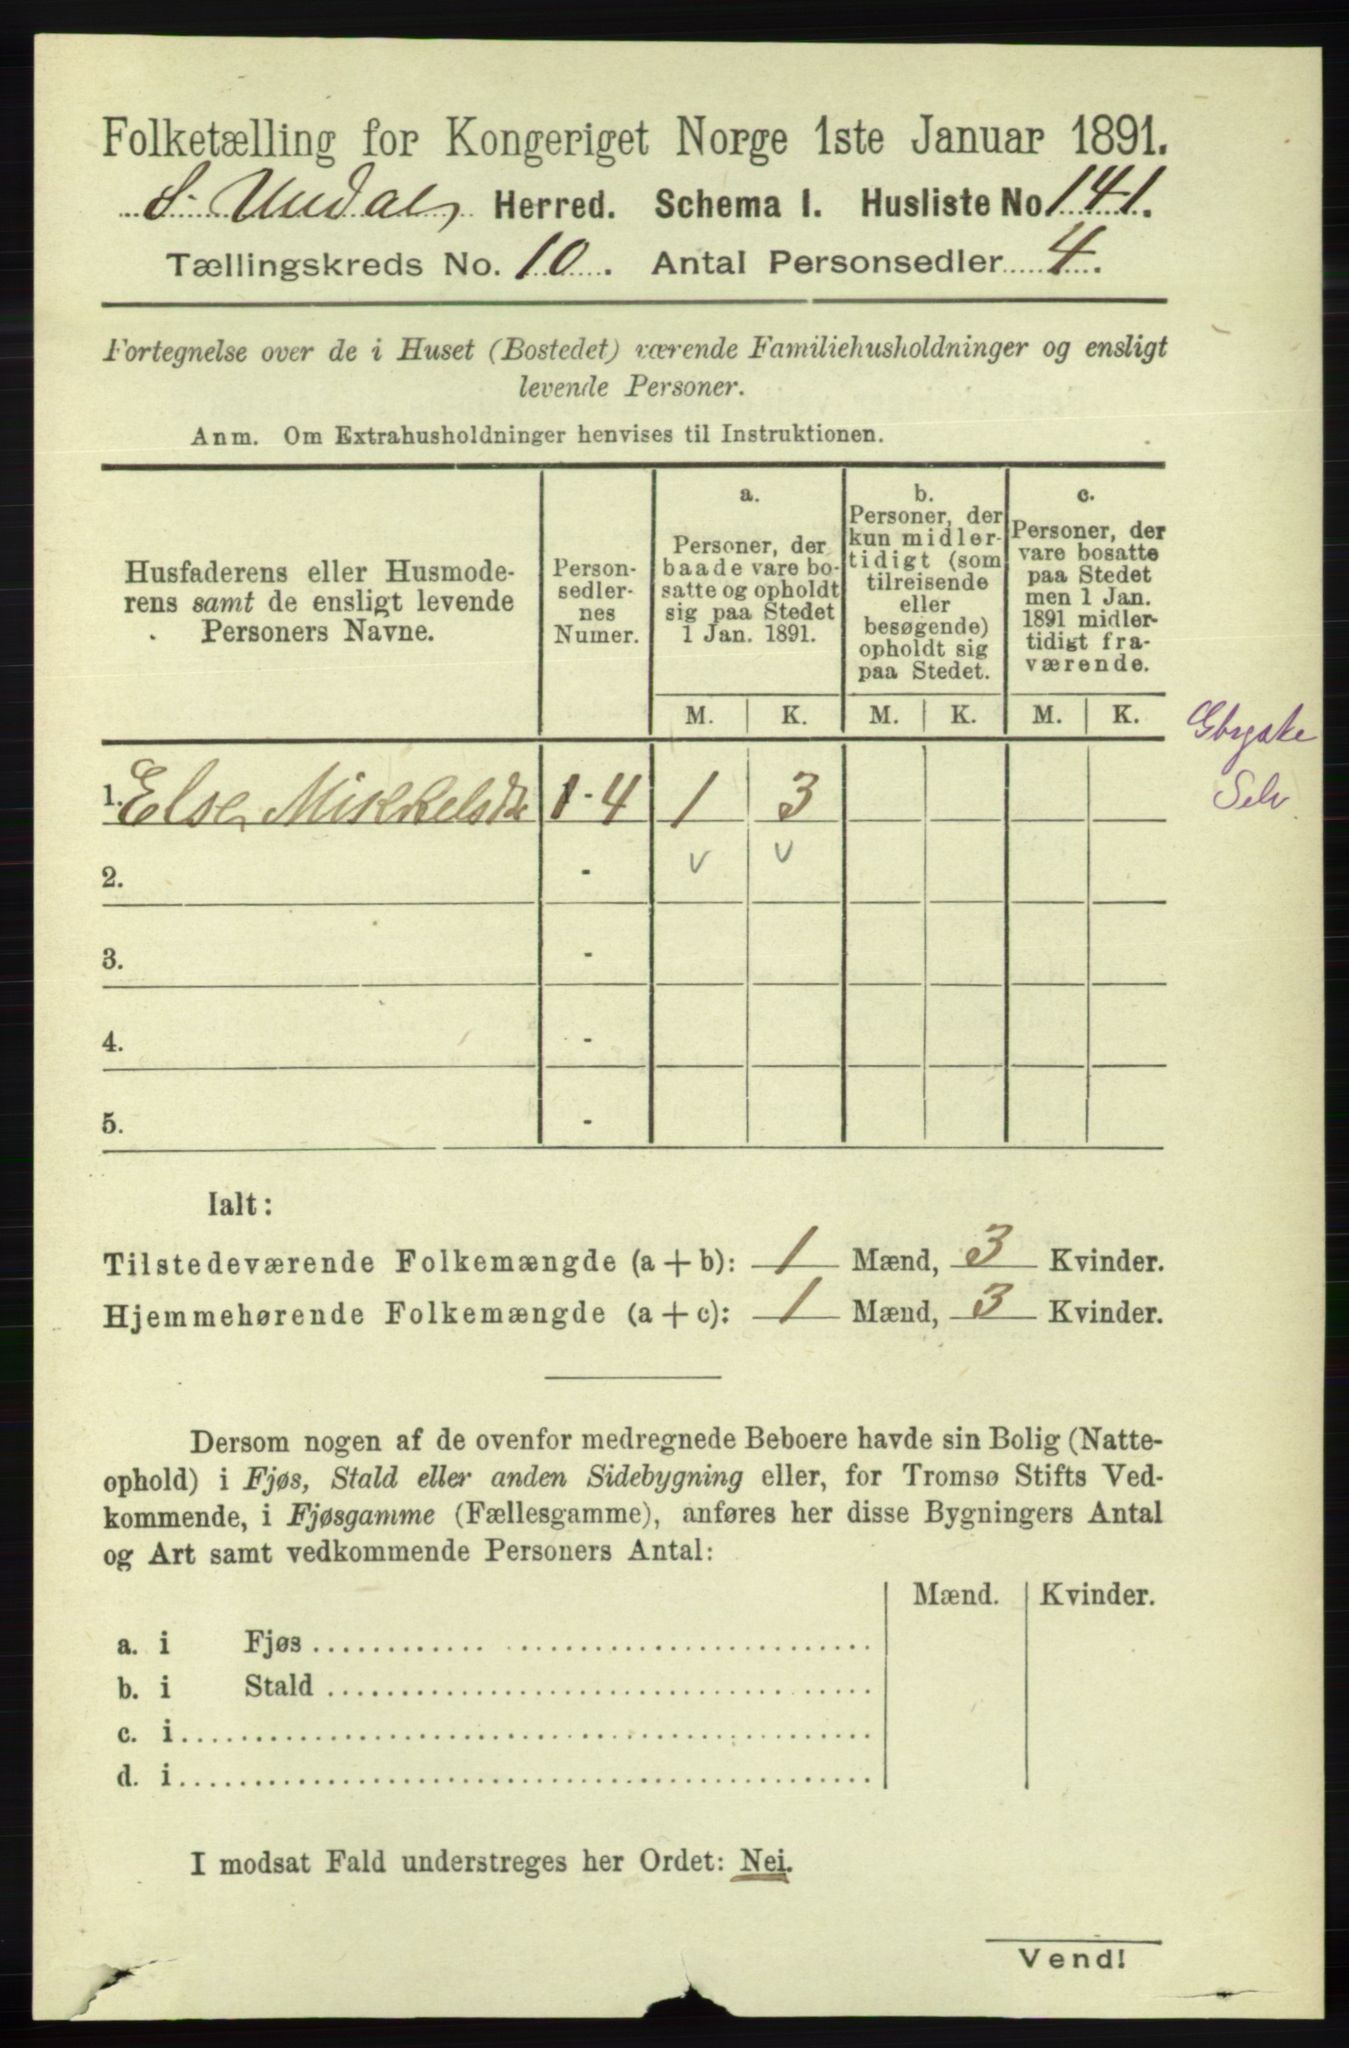 Folketælling for Kongeriget Norge 1ste Januar 1891.
S. Undals Herred. Schema I. Husliste No 141.
Tællingskreds No. 10. Antal Personsedler 4.
Fortegnelse over de i Huset (Bostedet) værende Familiehusholdninger og ensligt
levende Personer.
Anm. Om Extrahusholdninger henvises til Instruktionen.
Husfaderens eller Husmode-
rens samt de ensligt levende
Personers Navne.
Person-
sedler-
nes
Numer.
a.
Personer, der
baade vare bo-
satte og opholdt
sig paa Stedet
1 Jan. 1891.
b.
Personer, der
kun midler-
tidigt (som
tilreisende
eller
besøgende)
opholdt sig
paa Stedet.
c.
Personer, der
vare bosatte
paa Stedet
men 1 Jan.
1891 midler-
tidigt fra-
værende.
M. K. M. K. M. K.
1. Else Mikkelsdtr 1-4 1 3
Selv
2. - v v
3. -
4. -
5. -
Ialt:
Tilstedeværende Folkemængde (a + b): 1 Mænd, 3 Kvinder.
Hjemmehørende Folkemængde (a + c): 1 Mænd, 3 Kvinder.
Dersom nogen af de ovenfor medregnede Beboere havde sin Bolig (Natte-
ophold) i Fjøs, Stald eller anden Sidebygning eller, for Tromsø Stifts Ved-
kommende, i Fjøsgamme (Fællesgamme), anføres her disse Bygningers Antal
og Art samt vedkommende Personers Antal:
Mænd. Kvinder.
a. i Fjøs
b. i Stald
c. i
d. i
I modsat Fald understreges her Ordet: Nei.
Vend!